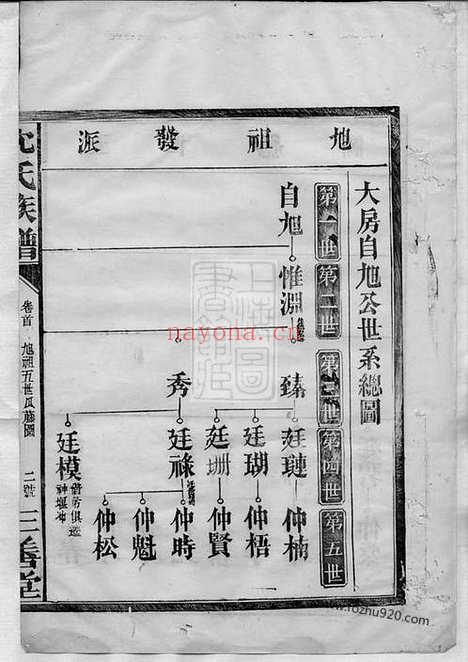 地祖發派
大房自旭公世系總圖
第一世
第二世
第三世
第四世
第五世
自旭
惟淵
臻
秀
廷璉
廷瑚
廷珊
廷祿
廷模
仲楠
仲梧
仲賢
仲時
仲魁
仲松
沈氏族譜
卷首
旭祖五世瓜藤圖
二號
三善堂
上海圖書館藏
nayona.cn